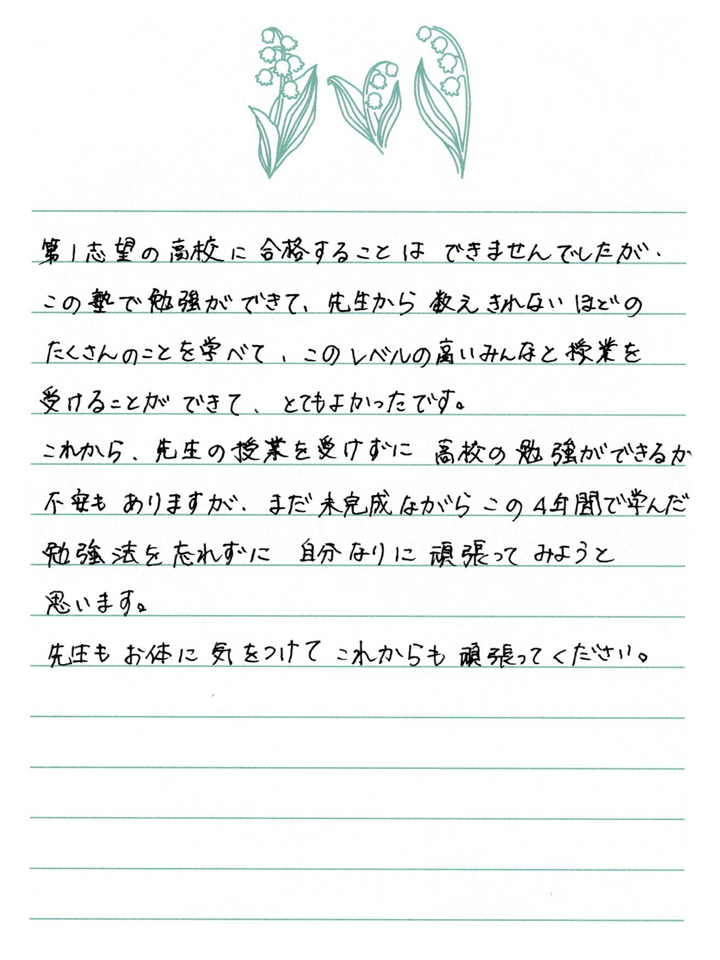 第1志望の高校に合格することはできませんでしたが、
この塾で勉強ができて、先生から数えきれないほどの
たくさんのことを学べて、このレベルの高いみんなと授業を
受けることができて、とてもよかったです。
これから、先生の授業を受けずに高校の勉強ができるか
不安もありますが、まだ未完成ながらこの4年間で学んだ
勉強法を忘れずに自分なりに頑張ってみようと
思います。
先生もお体に気をつけてこれからも頑張ってください。